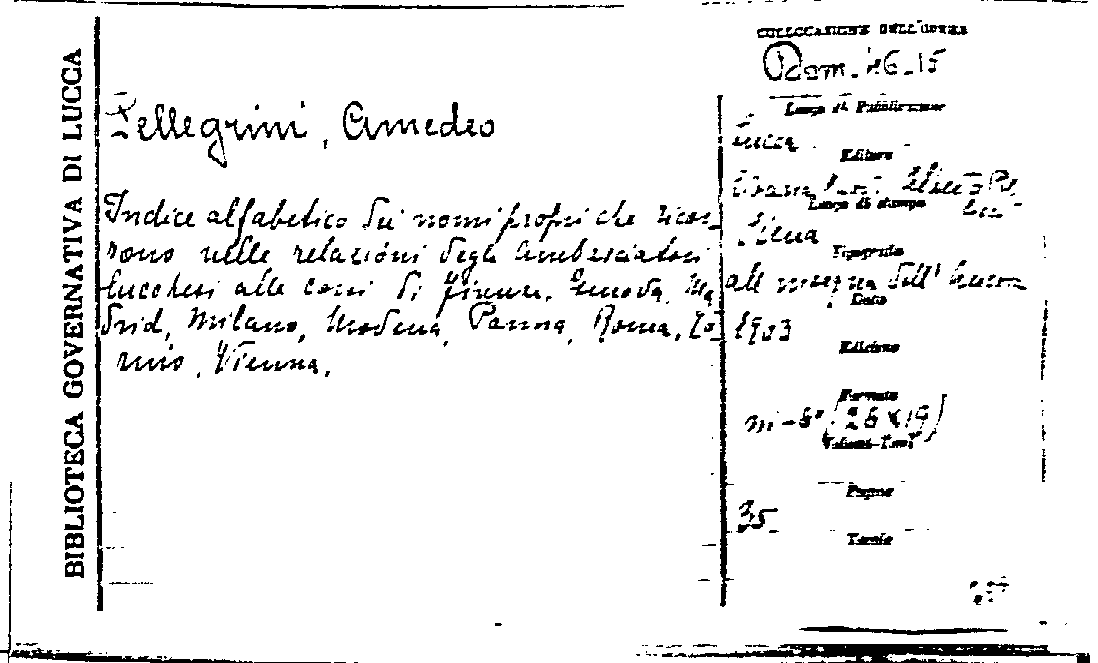 BIBLIOTECA GOVERNATIVA DI LUCCA
COLLOCAZIONE DELL'OPERA
Dom. 46-15
Pellegrini, Amedeo
Indice alfabetico dei nomi propri che ricor-
rono nelle relazioni degli ambasciatori
lucchesi alle corti di Firenze, Genova, Ma
drid, Milano, Modena, Parma, Roma, To-
rino, Vienna.
Luogo di Pubblicazione
Lucca
Editore
Luogo di stampa
Siena
Tipografia
all' insegna dell' Ancora
Data
1903
Edizione
Formato
in-8° (26 x 19)
Volumi-Tomi
Pagine
35
Tavole